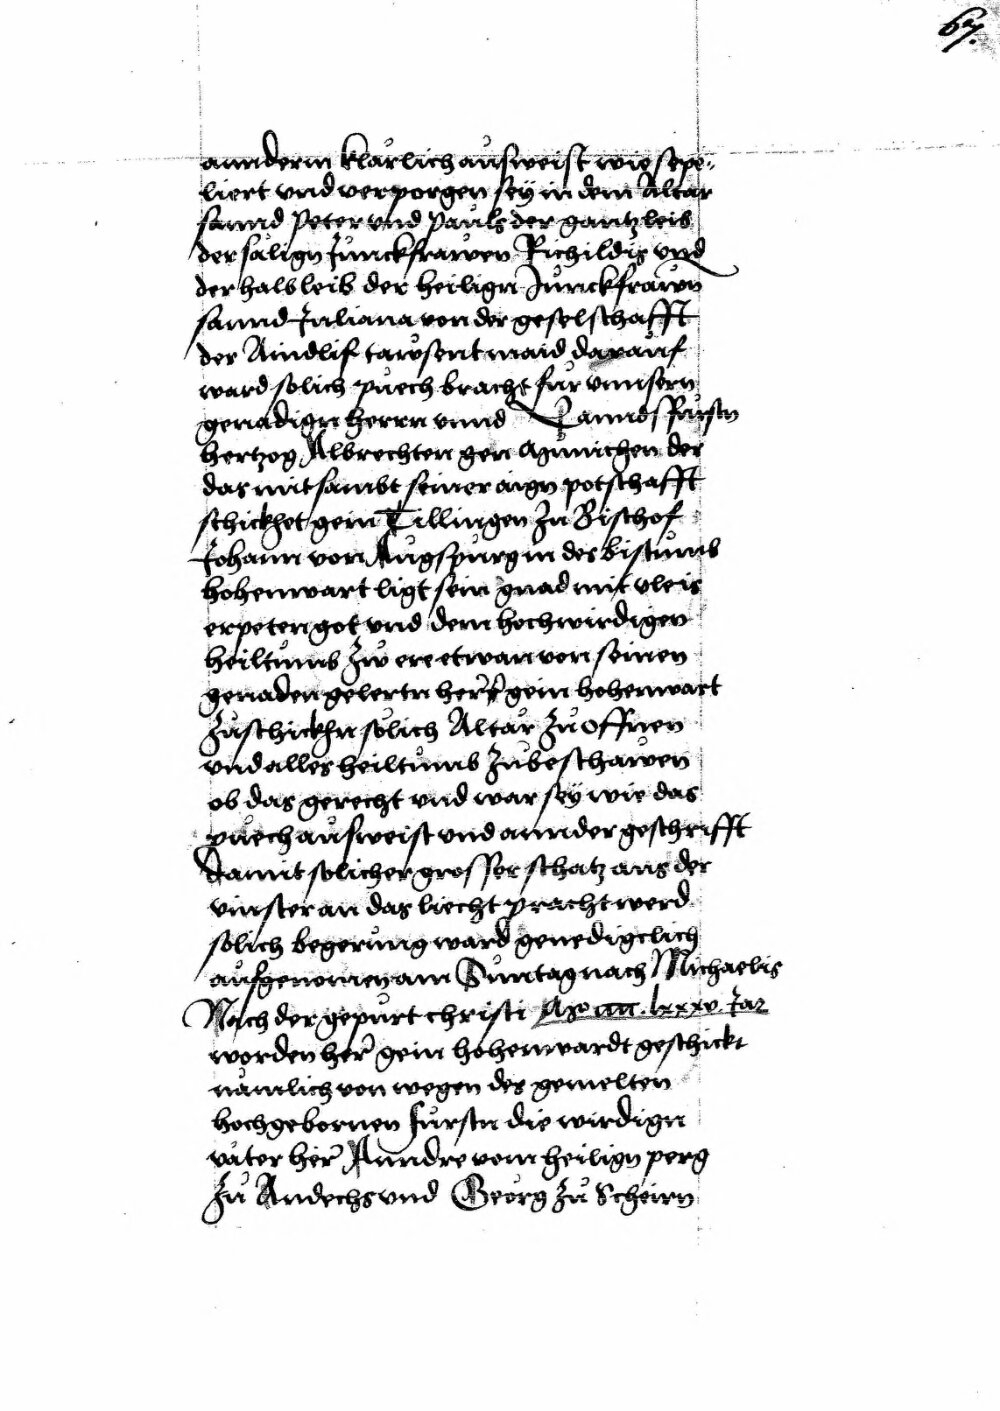 67.
annderm klarlich ausweist wie sepe-
liert vnd verporgen sey in dem Altar
sannd Peter vnd Pauls der gantz leib
der sälign Junckfrawen Richildis vnd
der halb leib der heilign Junckfrawn
sannd Juliana von der geselschafft
der Aindlif tawsent maid darauf
ward solich puech bracht fur vnnsern
genadign herrn vnnd Lanndsfürstn
hertzog Albrechten gen Munichen der
das mitsambt seiner aign potschafft
schickhet gein Tillingen zu Bischof
Johann von Augspurg in des bistumb
hohenwart ligt sein gnad mit vleis
erpeten got vnd dem hochwirdigen
heiltumb zw ere etwan von seinen
genaden gelertn herrn gein hohenwart
zuschickhn solich Altar zu offnen
vnd alles heiltumb zubeschawen
ob das gerecht vnd war sey wie das
puech ausweist vnd annder geschrifft
damit solicher grosser schatz aus der
vinster an das liecht pracht werd
solich begerung ward genedigclich
aufgenomen am Suntag nach Michaelis
Nach der gepurt christi Mo cccc. lxxxv. Jar
worden herr gein hohenwardt geschickt
nämlich von wegen des gemelten
hochgebornen fürstn die wirdign
väter herr Anndre vom heilign perg
zu Andechs vnd Georg zu Scheirn